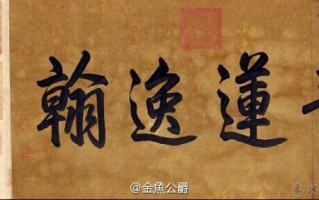 蓮逸翰
@金魚公爵